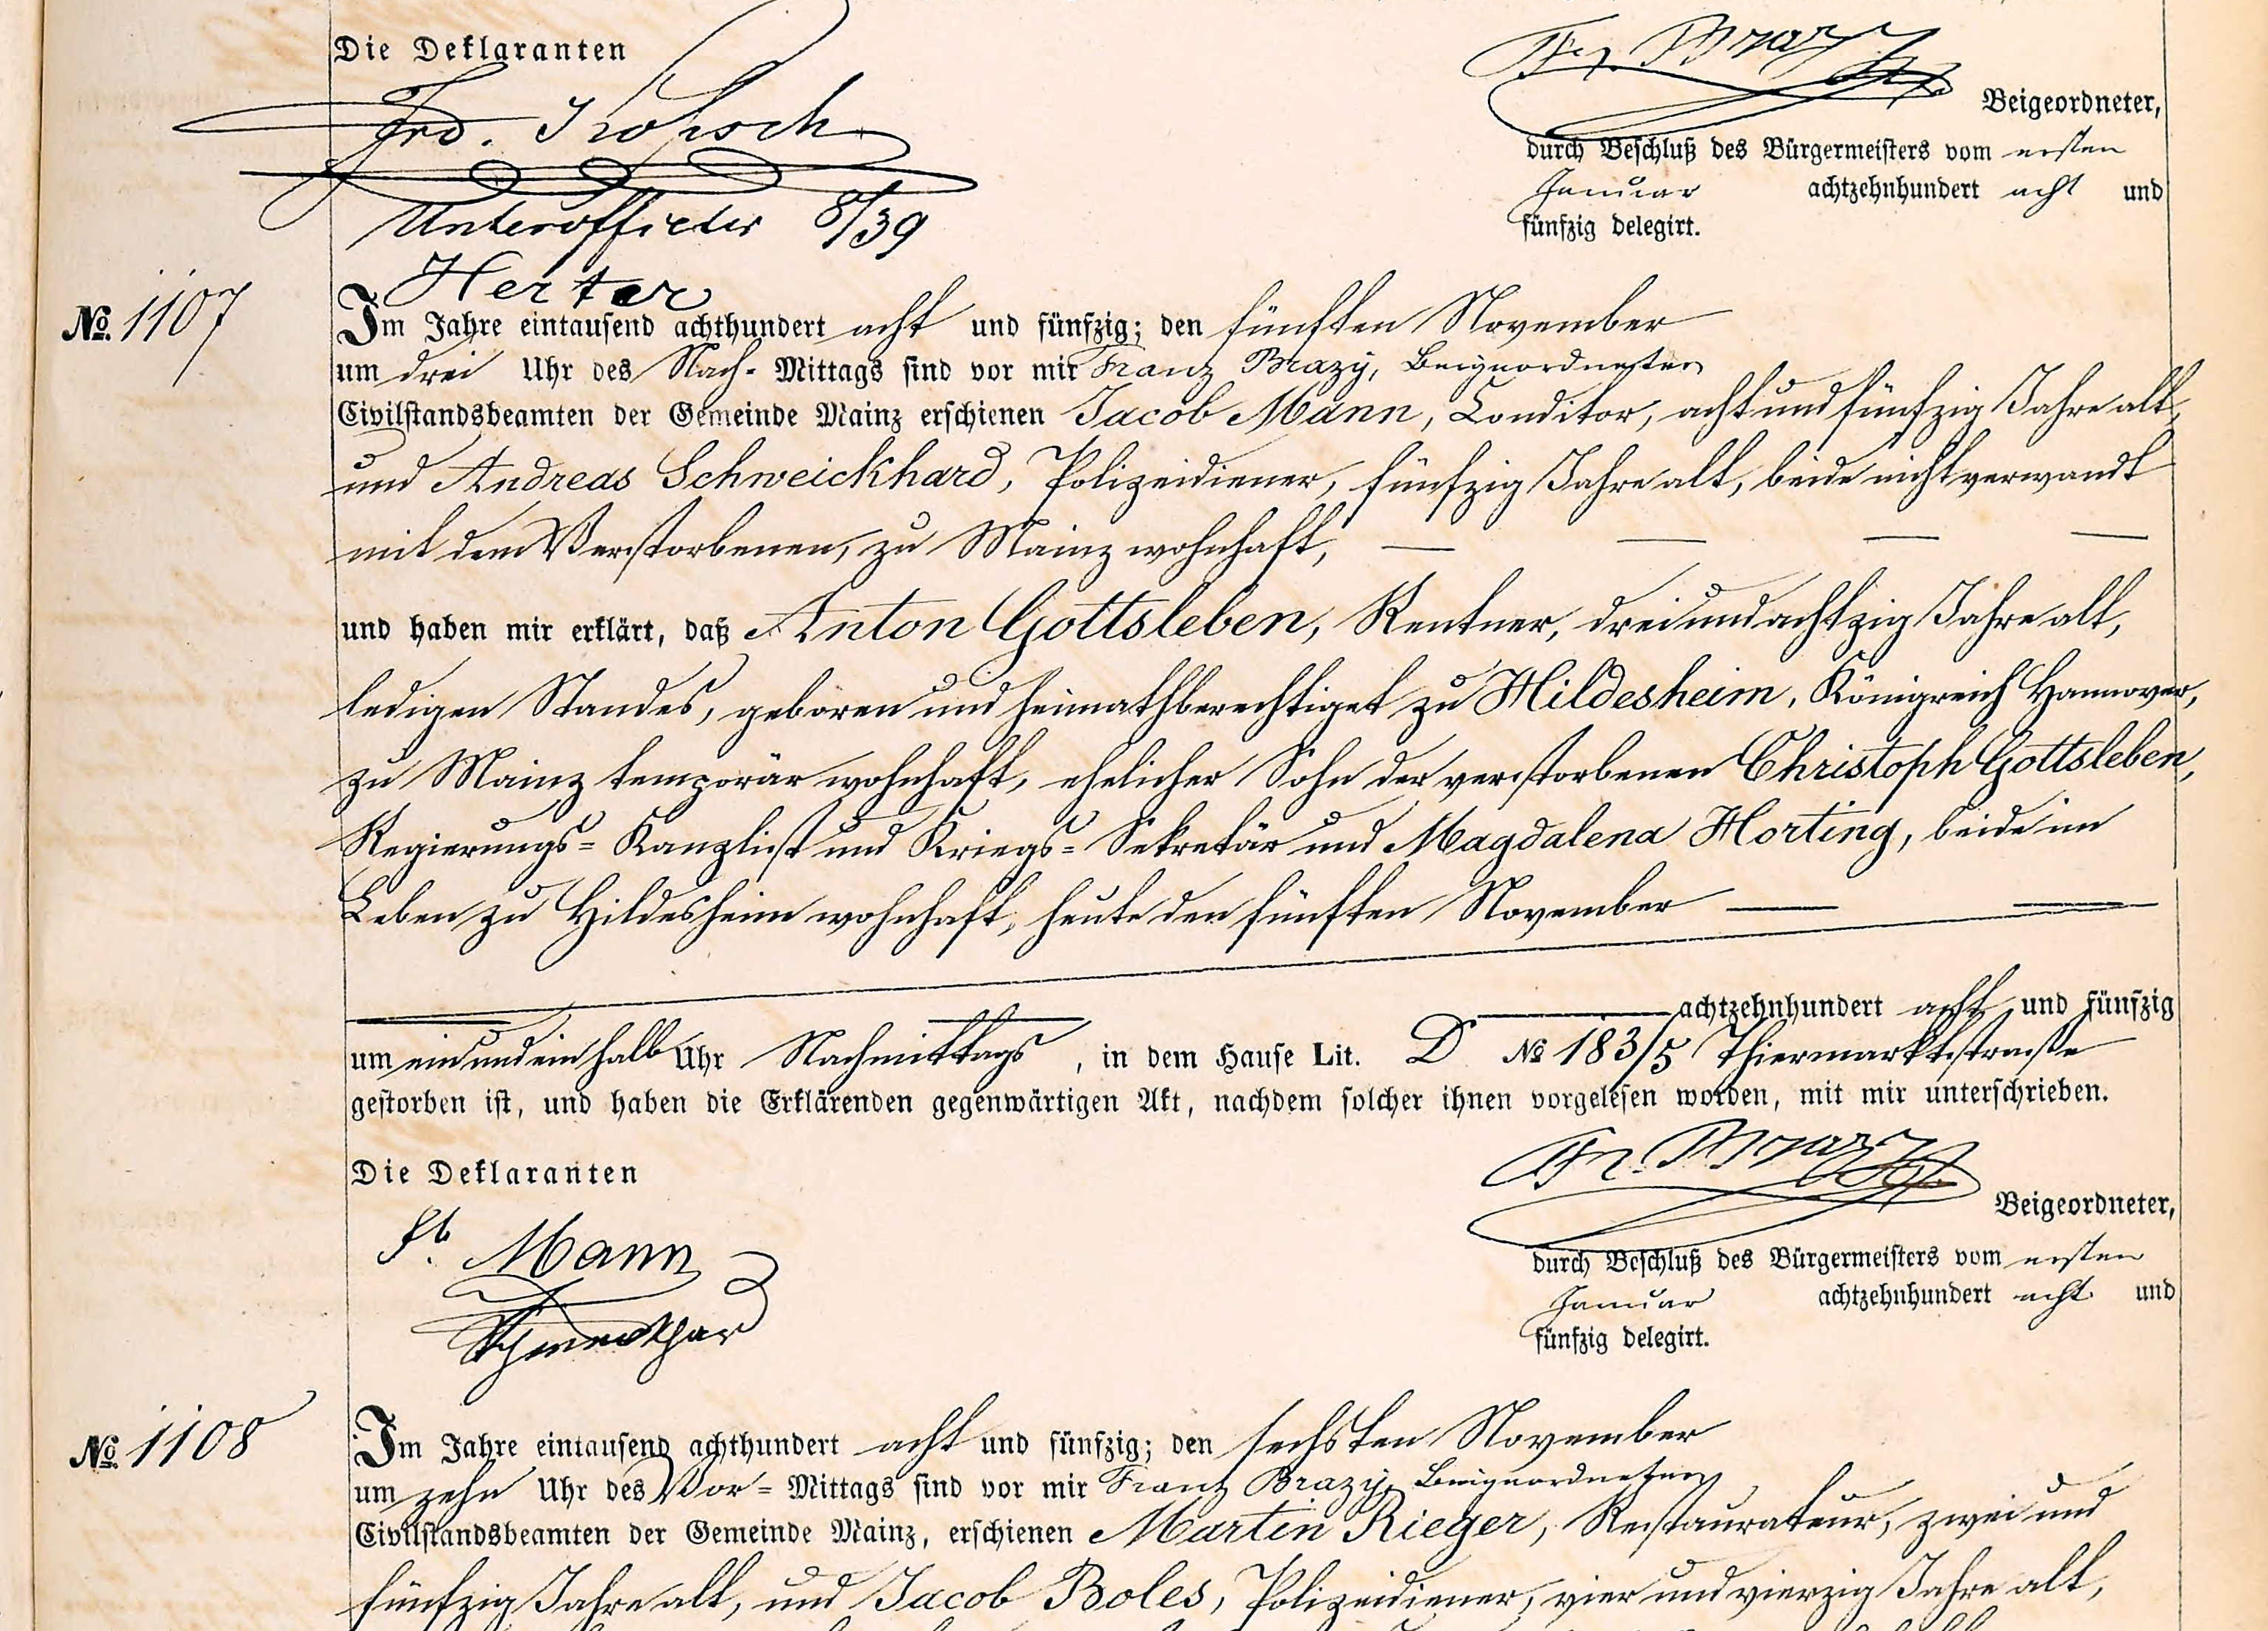 Die Deklaranten
Frd.
Unteroffizier 8/39
Herter
Fr. Brazy
Beigeordneter,
durch Beschluß des Bürgermeisters vom ersten
Januar achtzehnhundert acht und
fünfzig delegirt.
No. 1107
Im Jahre eintausend achthundert acht und fünfzig; den fünften November
um drei Uhr des Nach- Mittags sind vor mir Franz Brazy, Beigeordneten
Civilstandsbeamten der Gemeinde Mainz erschienen Jacob Mann, Conditor, acht und fünfzig Jahre alt,
und Andreas Schweickhard, Polizeidiener, fünfzig Jahre alt, beide nicht verwandt
mit dem Verstorbenen, zu Mainz wohnhaft, — — — —
und haben mir erklärt, daß Anton Gottsleben, Rentner, drei und achtzig Jahre alt,
ledigen Standes, geboren und heimathberechtiget zu Hildesheim, Königreich Hannover,
zu Mainz temporär wohnhaft, ehelicher Sohn der verstorbenen Christoph Gottsleben,
Regierungs= Kanzlist und Kriegs= Sekretär und Magdalena Horting, beide im
Leben zu Hildesheim wohnhaft, heute den fünften November — —
achtzehnhundert acht und fünfzig
um ein und ein halb Uhr Nachmittags, in dem Hause Lit. D No 183/5 Thiermarktstraße
gestorben ist, und haben die Erklärenden gegenwärtigen Akt, nachdem solcher ihnen vorgelesen worden, mit mir unterschrieben.
Die Deklaranten
Mann
Schweickhard
Fr. Brazy
Beigeordneter,
durch Beschluß des Bürgermeisters vom ersten
Januar achtzehnhundert acht und
fünfzig delegirt.
No. 1108
Im Jahre eintausend achthundert acht und fünfzig; den sechsten November
um zehn Uhr des Vor= Mittags sind vor mir Franz Brazy, Beigeordneten
Civilstandsbeamten der Gemeinde Mainz, erschienen Martin Rieger, Restaurateur, zwei und
fünfzig Jahre alt, und Jacob Boles, Polizeidiener, vier und vierzig Jahre alt,